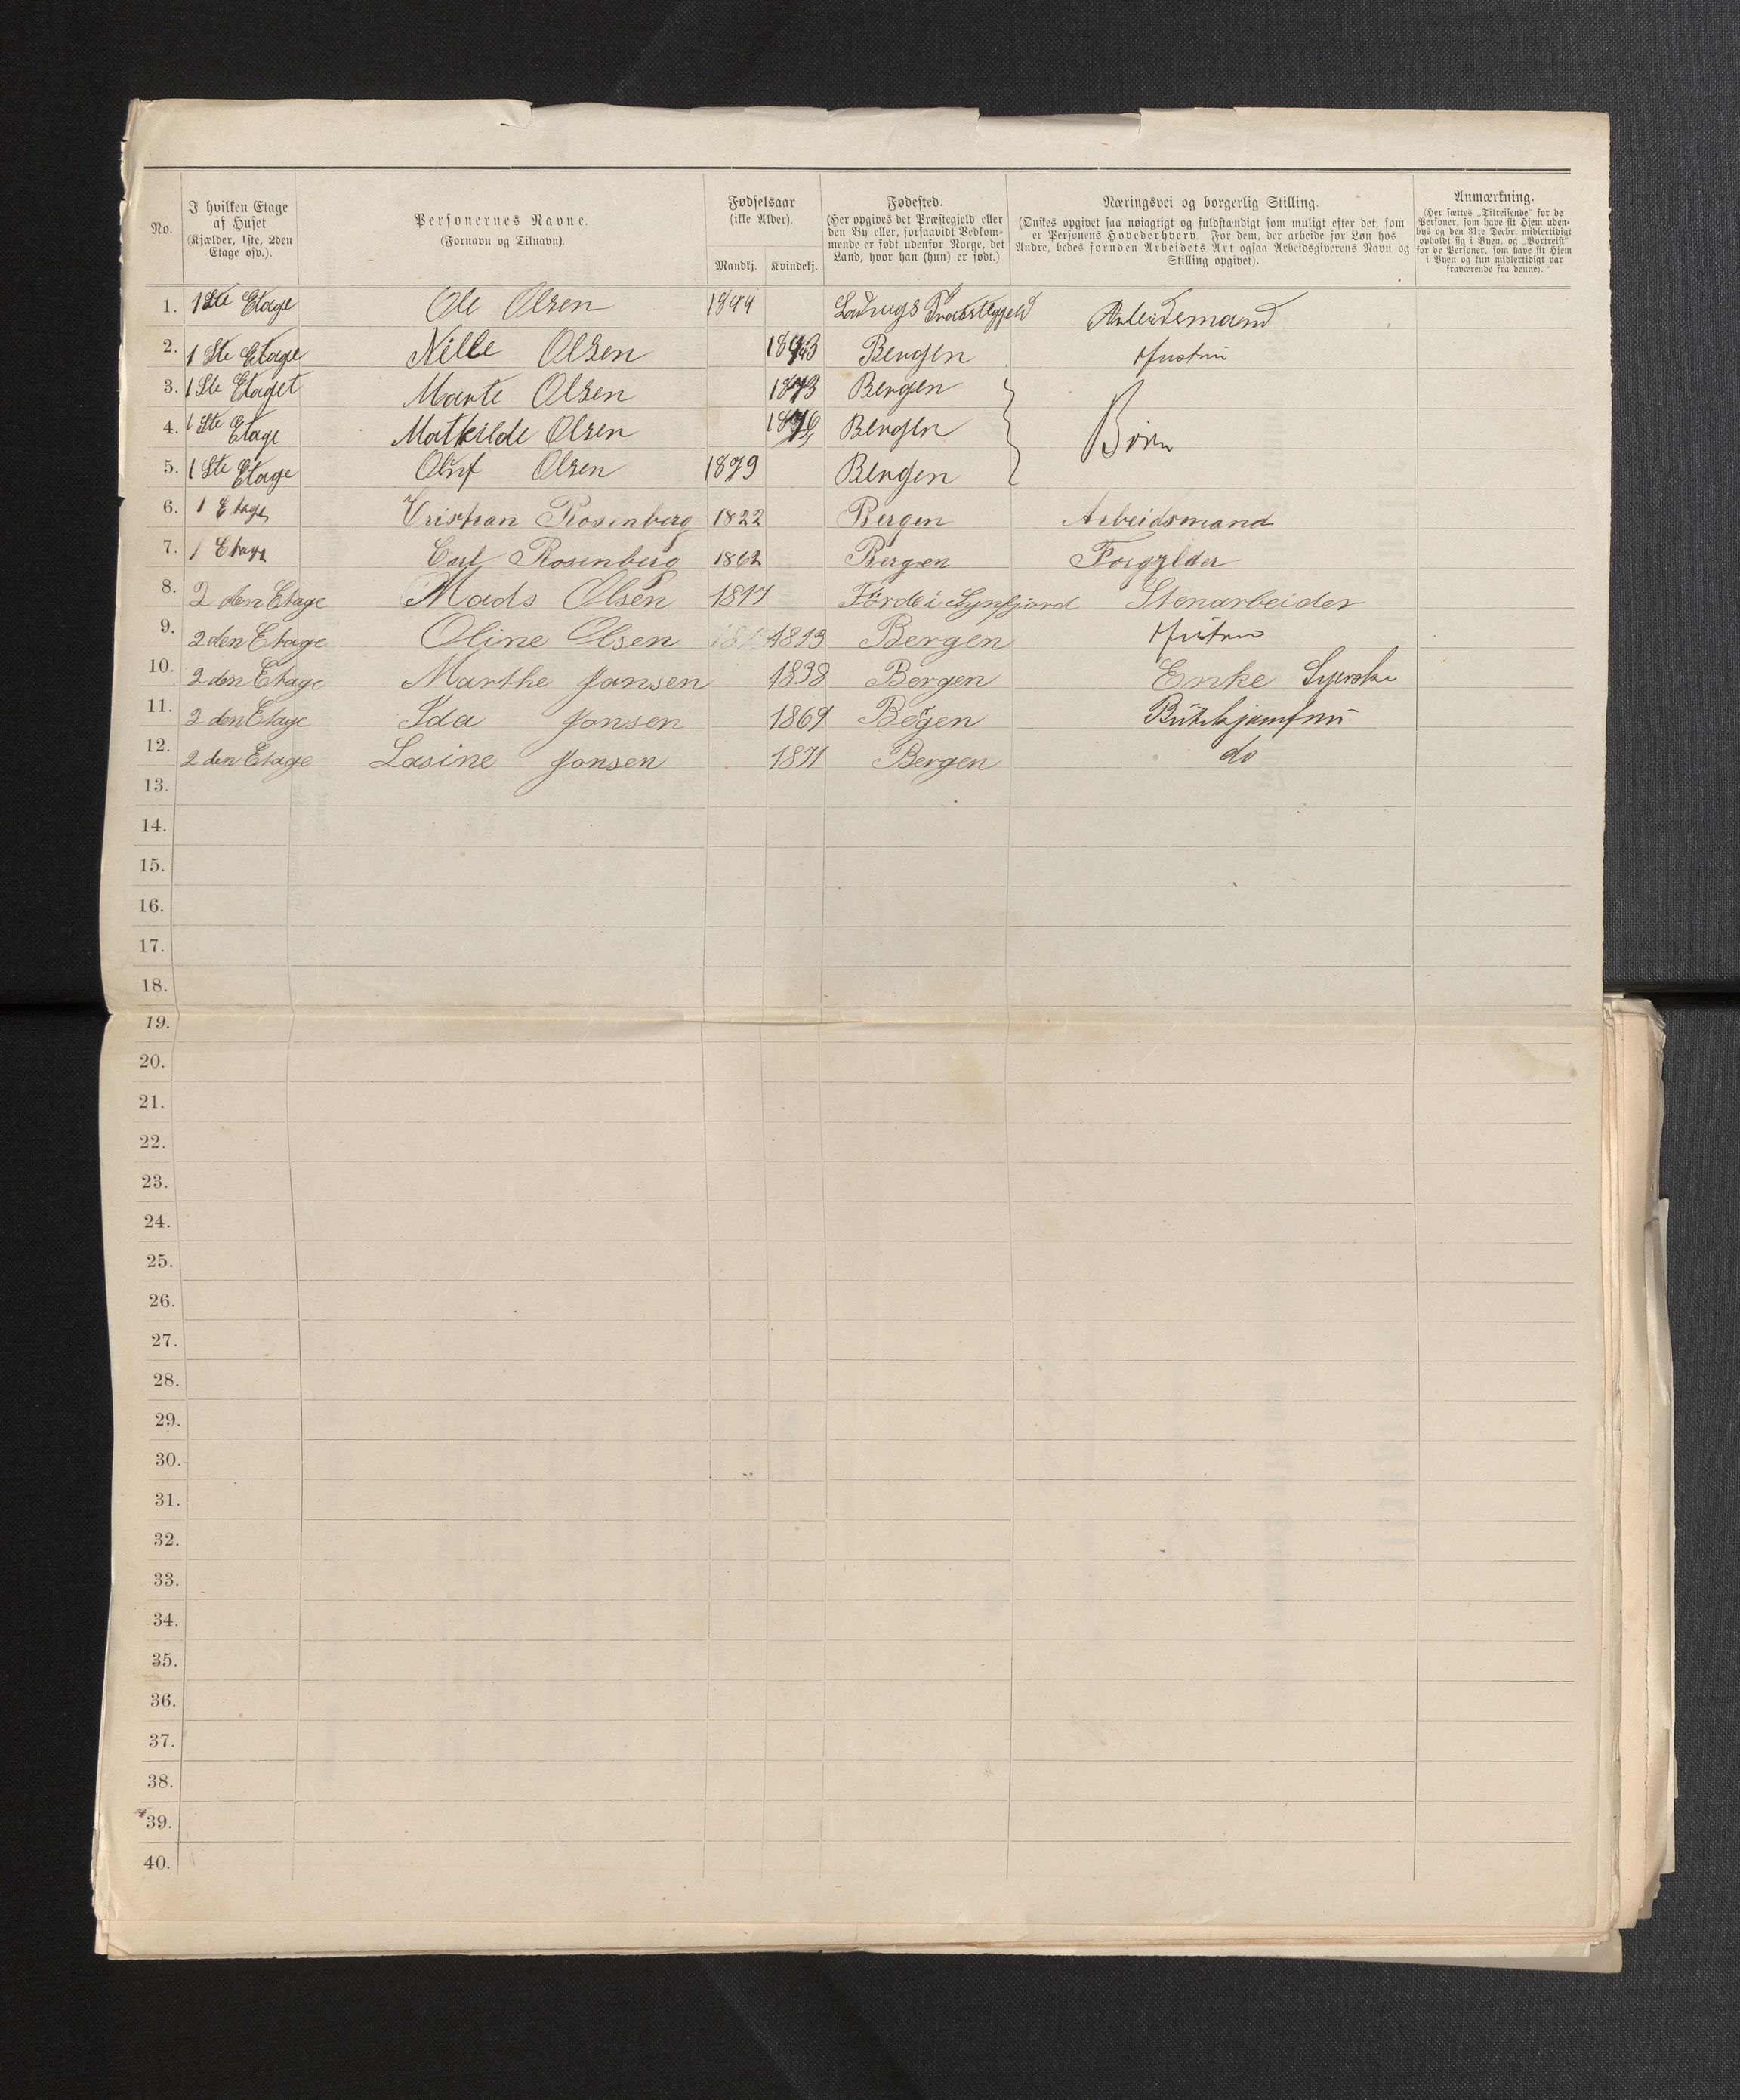 No.
I hvilken Etage
af Huset
(Kjælder, 1ste, 2den
Etage osv.).
Personernes Navne.
(Fornavn og Tilnavn)
Fødselsaar
(ikke Alder).
Mandkj. Kvindekj.
Fødested.
(Her opgives det Præstegjeld eller
den By eller, forsaavidt Vedkom-
mende er født udenfor Norge, det
Land, hvor han (hun) er født.)
Næringsvei og borgerlig Stilling.
(Ønskes opgivet saa nøiagtigt og fuldstændigt som muligt efter det, som
er Personens Hovederhverv. For dem, der arbeide for Løn hos
Andre, bedes foruden Arbeidets Art ogsaa Arbeidsgiverens Navn og
Stilling opgivet).
Anmærkning.
(Her sættes „Tilreisende“ for de
Personer, som have sit Hjem uden-
bys og den 31te Decbr. midlertidigt
opholdt sig i Byen, og „Bortreist“
for de Personer, som have sit Hjem
i Byen og kun midlertidigt var
fraværende fra denne).
1. 1ste Etage Ole Olsen 1844 Præstegjeld Arbeidsmand
2. 1 Ste Etage Nille Olsen Bergen Hustru
3. 1 Ste Etaget Marte Olsen 1873 Bergen
4. 1 Ste Etage Mathilde Olsen Bergen Børn
5. 1 Ste Etage Oluf Olsen 1879 Bergen
6. 1 Etage Cristian Rosenberg 1822 Bergen Arbeidsmand
7. 1 Etage Carl Rosenberg 1862 Bergen Forgylder
8. 2 den Etage Mads Olsen 1817 Førde i Synfjord Stenarbeider
9. 2 den Etage Oline Olsen 1819 Bergen Hustru
10. 2 den Etage Marthe Jansen 1838 Bergen Enke Syerske
11. 2 den Etage Ida Jonsen 1869 Begen Butikjomfru
12. 2 den Etage Lasine Jonsen 1871 Bergen do
13.
14.
15.
16.
17.
18.
19.
20.
21.
22.
23.
24.
25.
26.
27.
28.
29.
30.
31.
32.
33.
34.
35.
36.
37.
38.
39.
40.